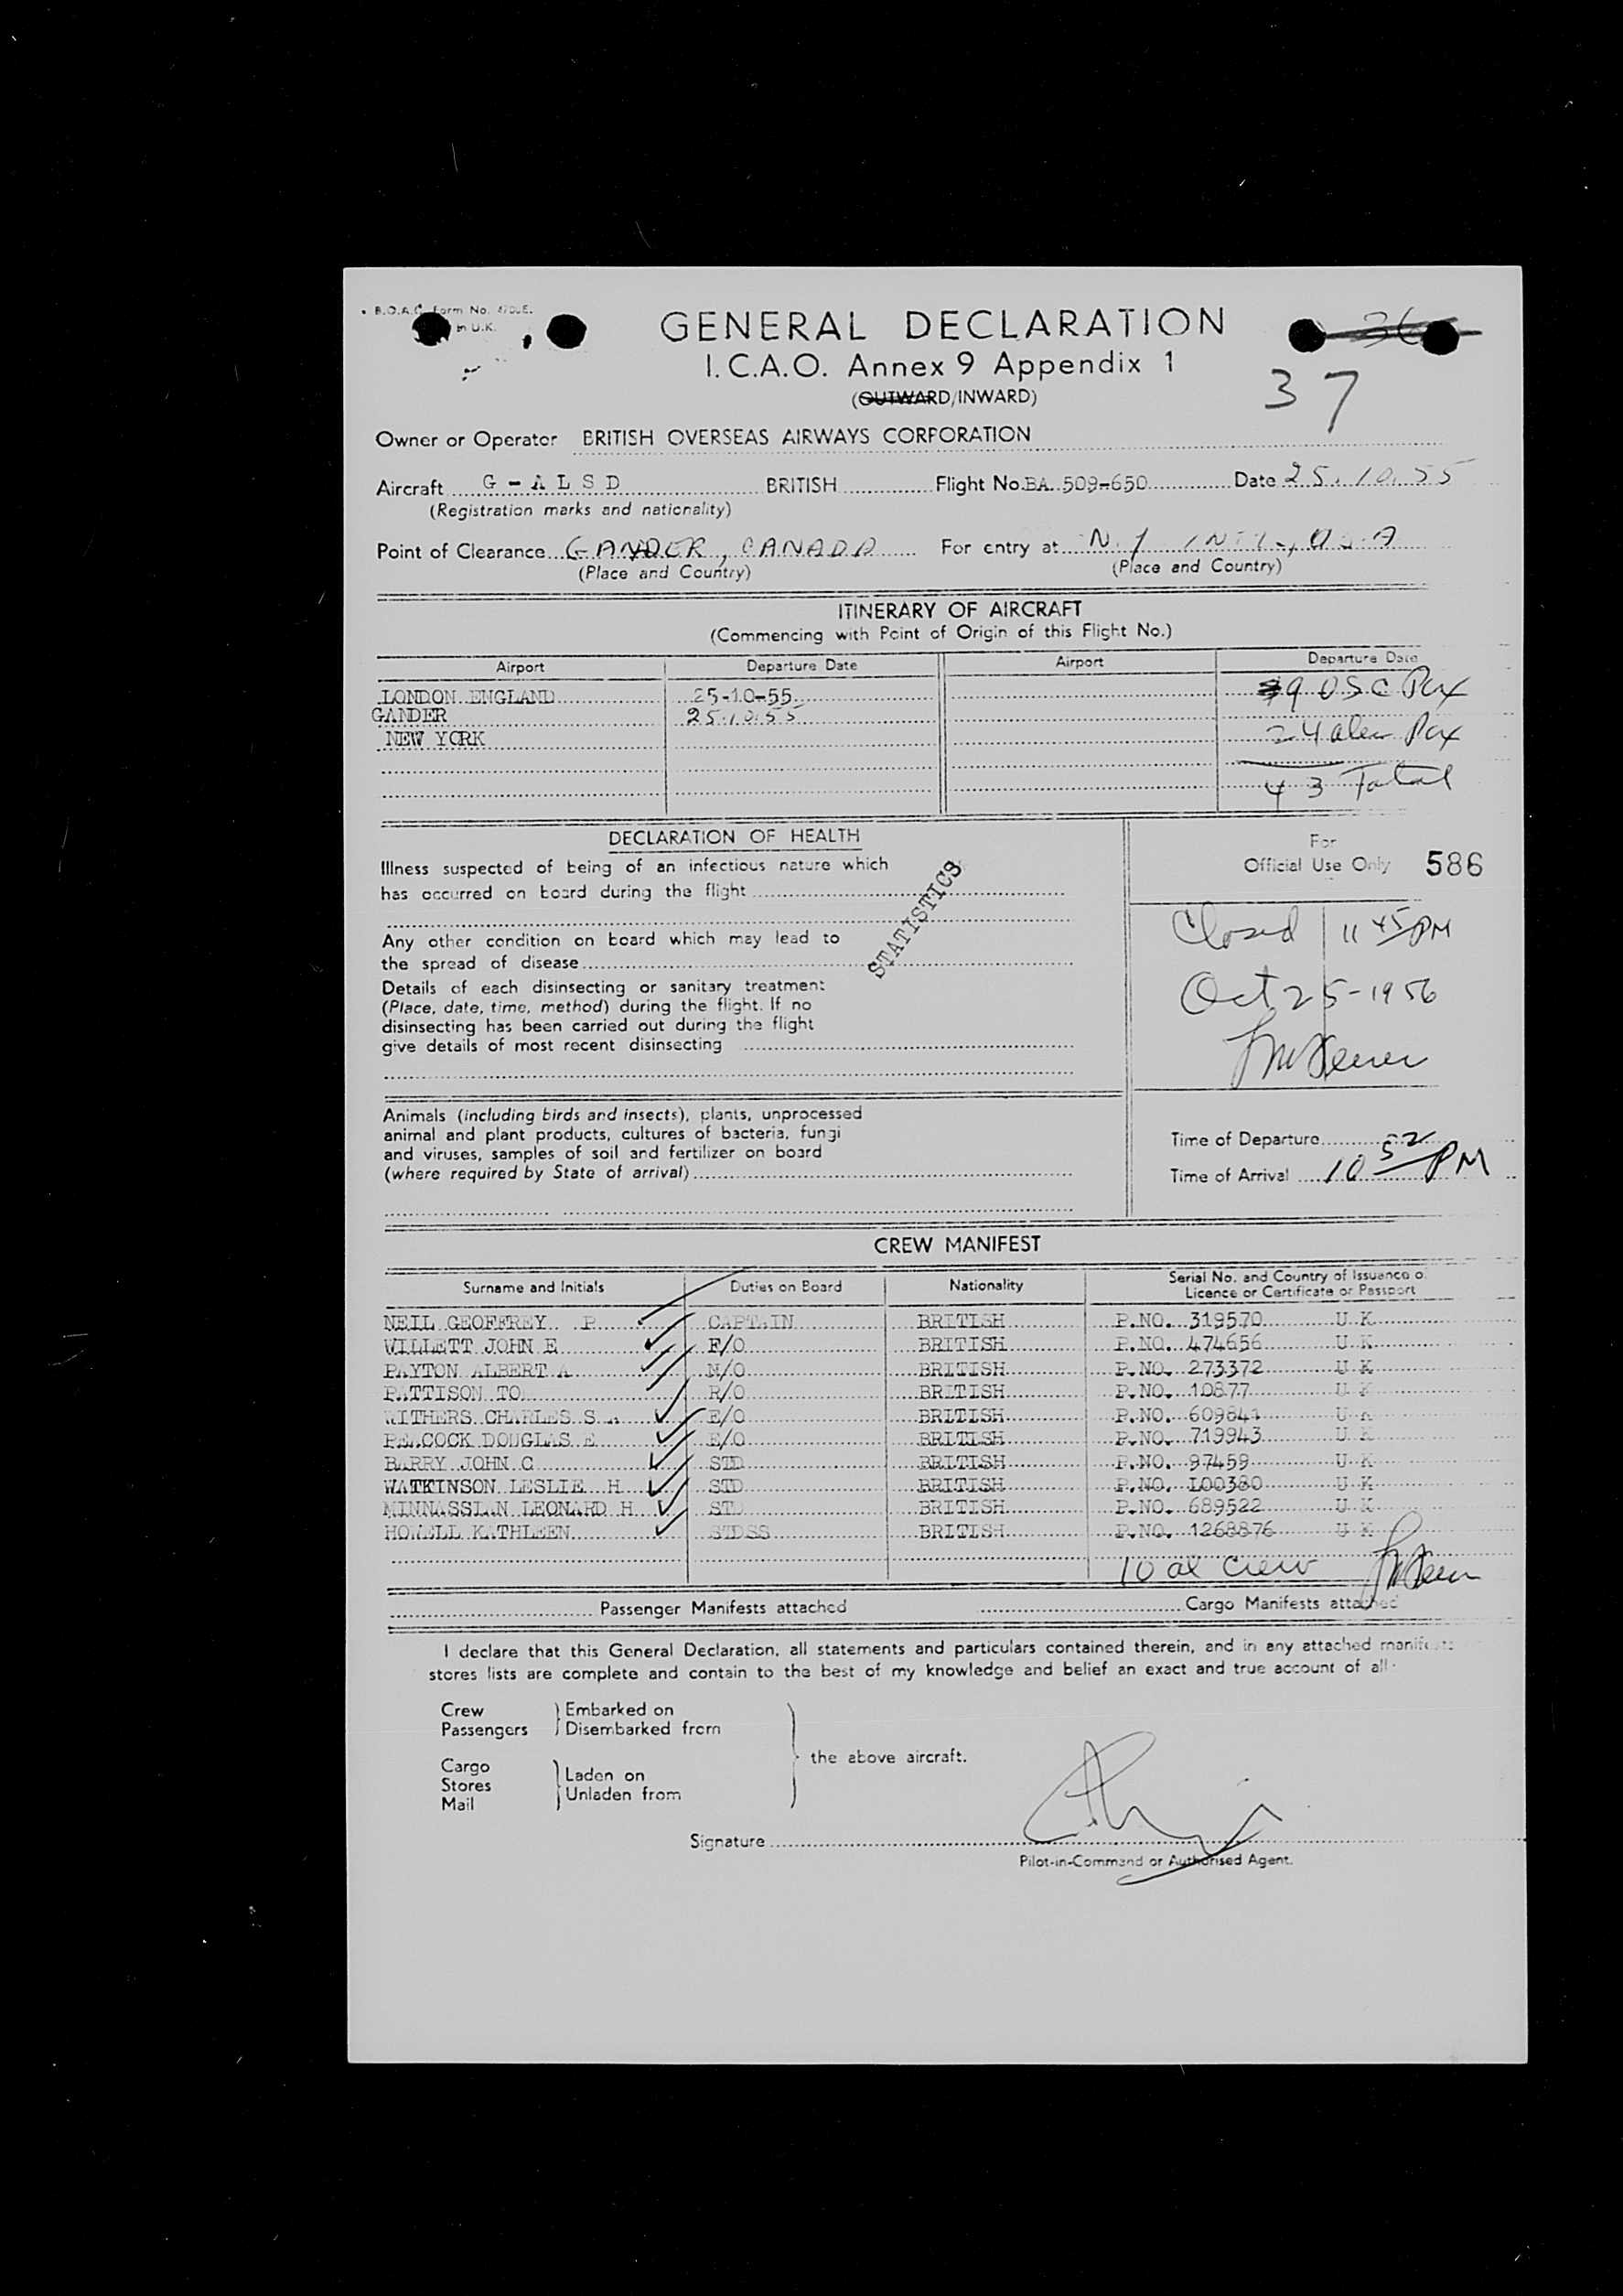 B.O.A.C. Form No.
in U.K.
GENERAL DECLARATION
I.C.A.O. Annex 9 Appendix 1
(OUTWARD/INWARD)
37
Owner or Operator BRITISH OVERSEAS AIRWAYS CORPORATION
Aircraft G-ALSD BRITISH Flight No. BA. 509-650 Date 25.10.55
(Registration marks and nationality)
Point of Clearance GANDER, CANADA For entry at N.Y. INTL, USA
(Place and Country) (Place and Country)
ITINERARY OF AIRCRAFT
(Commencing with Point of Origin of this Flight No.)
Airport Departure Date Airport Departure Date
LONDON ENGLAND 25-10-55 USC Pax
GANDER 25.10.55
NEW YORK 24 alien Pax
43 Total
DECLARATION OF HEALTH
For
Official Use Only 586
Illness suspected of being of an infectious nature which
has occurred on board during the flight
STATISTICS
Any other condition on board which may lead to
the spread of disease
Details of each disinsecting or sanitary treatment
(Place, date, time, method) during the flight. If no
disinsecting has been carried out during the flight
give details of most recent disinsecting
Closed 11 45 PM
Oct 25-1956
Animals (including birds and insects), plants, unprocessed
animal and plant products, cultures of bacteria, fungi
and viruses, samples of soil and fertilizer on board
(where required by State of arrival)
Time of Departure
Time of Arrival 10 52 PM
CREW MANIFEST
Surname and Initials Duties on Board Nationality Serial No. and Country of Issuance of
Licence or Certificate or Passport
NEIL GEOFFREY P CAPTAIN BRITISH P.NO. 319570 U K
WILLETT JOHN E F/O BRITISH P.NO. 474656 U K
PAYTON ALBERT A N/O BRITISH P.NO. 273372 U K
PATTISON TO R/O BRITISH P.NO. 10877 U K
WITHERS CHARLES S A E/O BRITISH P.NO. 609841 U K
PEACOCK DOUGLAS E E/O BRITISH P.NO. 719943 U K
BARRY JOHN C STD BRITISH P.NO. 97459 U K
WATKINSON LESLIE H STD BRITISH P.NO. L00380 U K
MINNASSIAN LEONARD H STD BRITISH P.NO. 689522 U K
HOWELL KATHLEEN STDSS BRITISH P.NO. 1268876 U K
10 al crew
Passenger Manifests attached Cargo Manifests attached
I declare that this General Declaration, all statements and particulars contained therein, and in any attached manifests
stores lists are complete and contain to the best of my knowledge and belief an exact and true account of all
Crew Embarked on
Passengers Disembarked from
the above aircraft.
Cargo
Stores Laden on
Mail Unladen from
Signature
Pilot-in-Command or Authorised Agent.